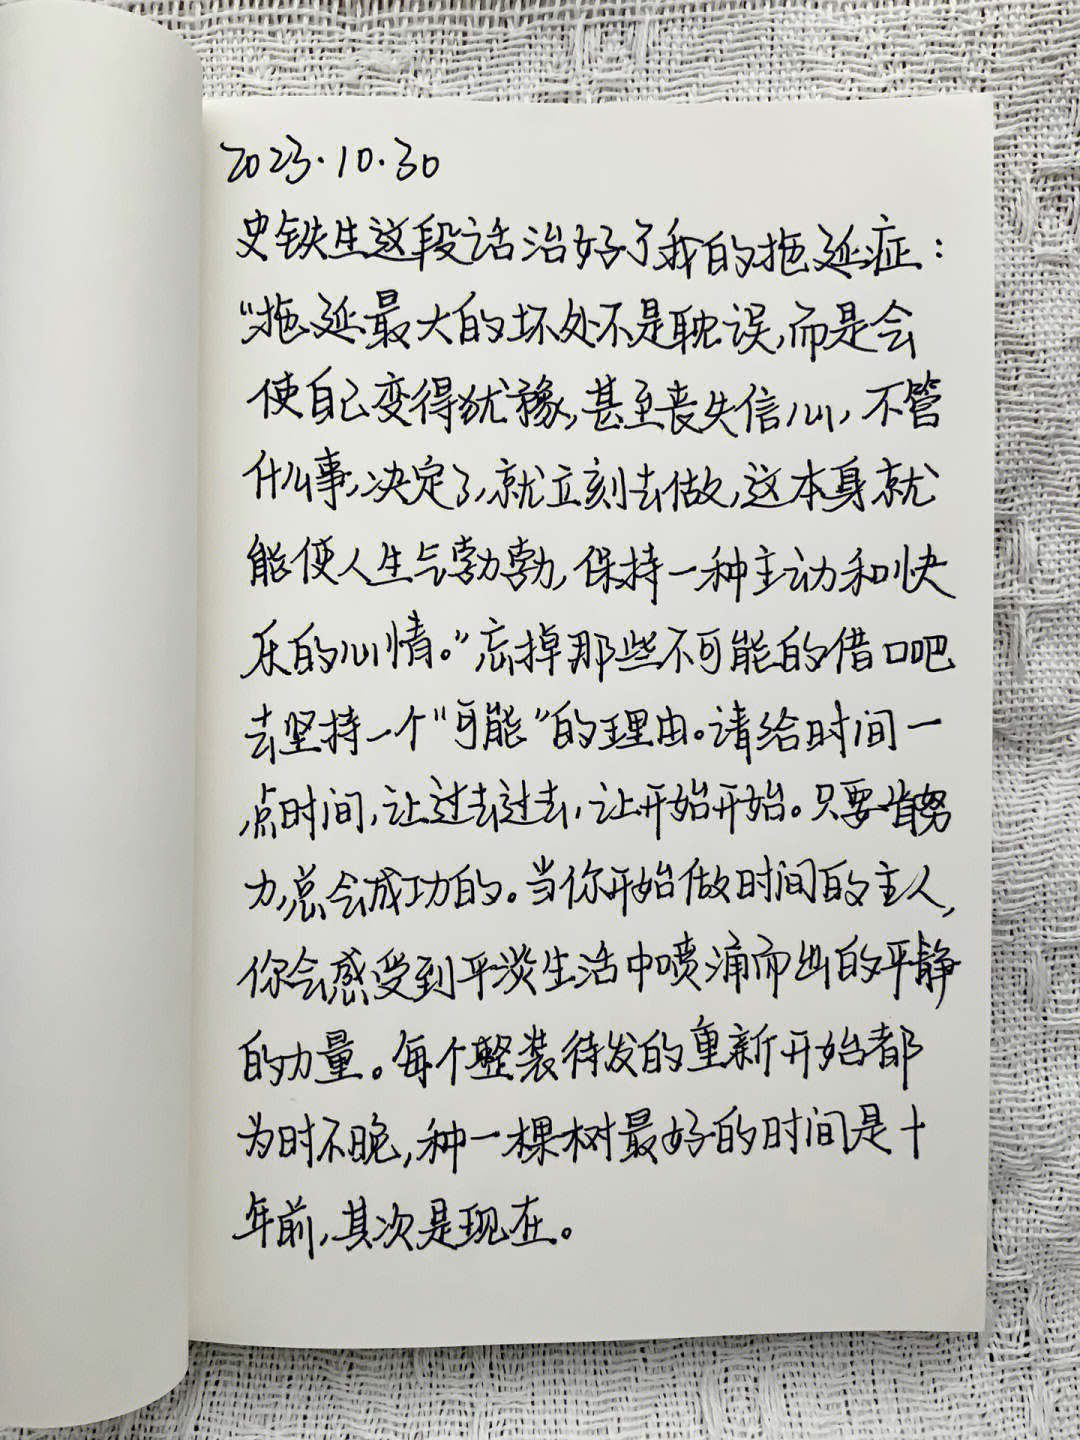 2023.10.30
史铁生这段话治好了我的拖延症：
“拖延最大的坏处不是耽误，而是会
使自己变得犹豫，甚至丧失信心，不管
什么事，决定了，就立刻去做，这本身就
能使人生气勃勃，保持一种主动和快
乐的心情。”忘掉那些不可能的借口吧
去坚持一个“可能”的理由。请给时间一
点时间，让过去过去，让开始开始。只要肯努
力，总会成功的。当你开始做时间的主人，
你会感受到平淡生活中喷涌而出的平静
的力量。每个整装待发的重新开始都
为时不晚，种一棵树最好的时间是十
年前，其次是现在。